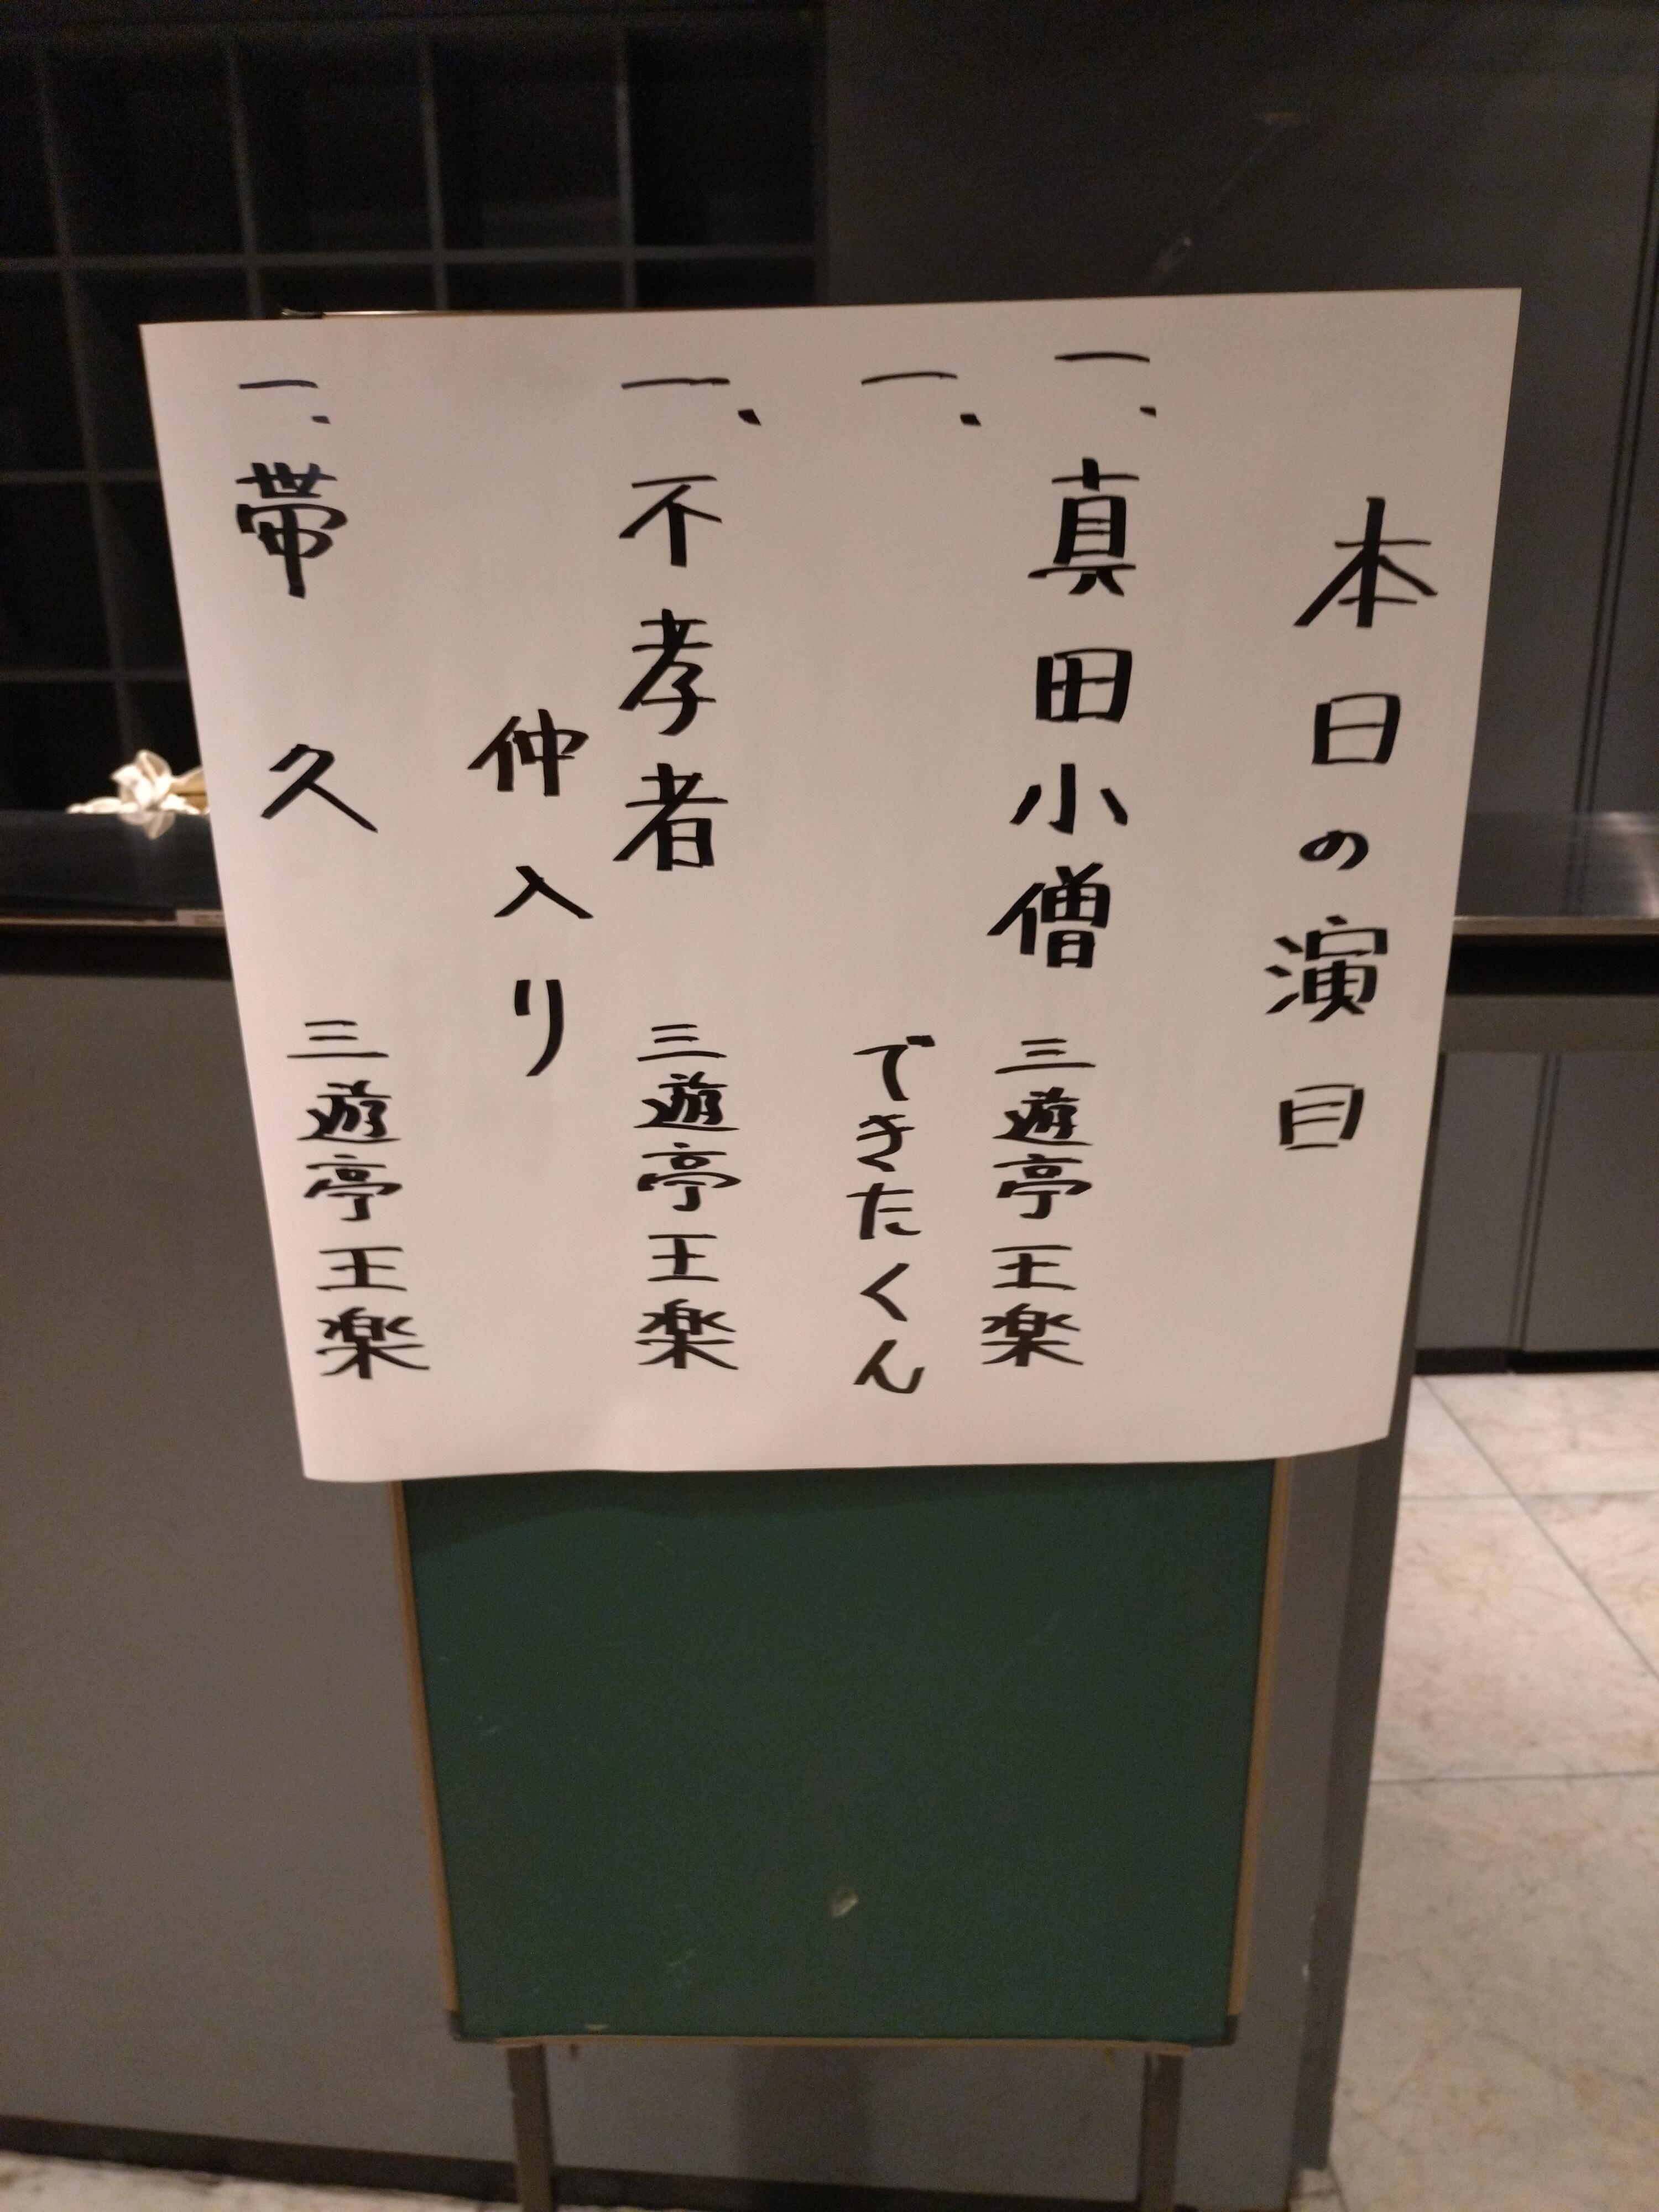 本日の演目
一、真田小僧 三遊亭王楽
一、 できたくん
一、不孝者 三遊亭王楽
仲入り
一、帯久 三遊亭王楽